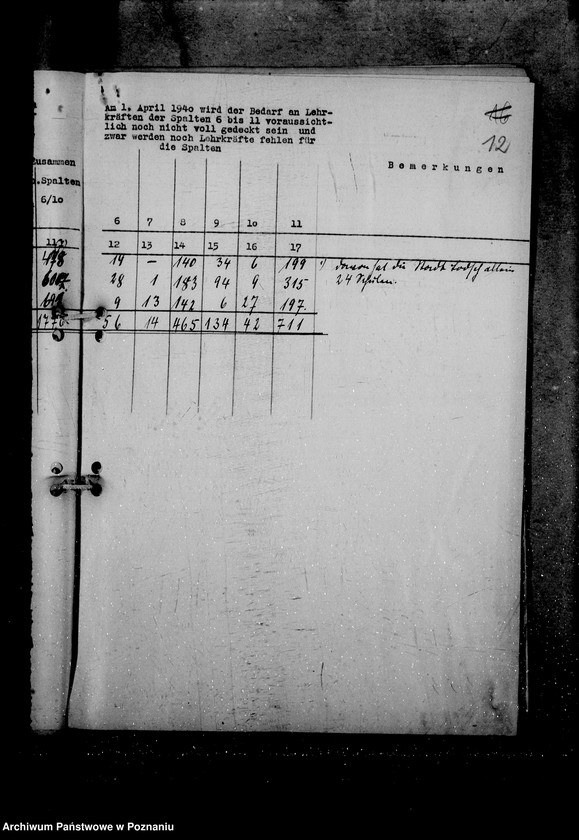 12
Am 1. April 1940 wird der Bedarf an Lehr-
kräften der Spalten 6 bis 11 voraussicht-
lich noch nicht voll gedeckt sein und
zwar werden noch Lehrkräfte fehlen für
die Spalten
Bemerkungen
zusammen
Spalten
6/10
6 7 8 9 10 11
11 12 13 14 15 16 17
478 19 — 140 34 6 199 davon hat die Stadt Lodsch allein
28 1 183 94 9 315 24 Schulen.
9 13 142 6 27 197
56 14 465 134 42 711
Archiwum Państwowe w Poznaniu